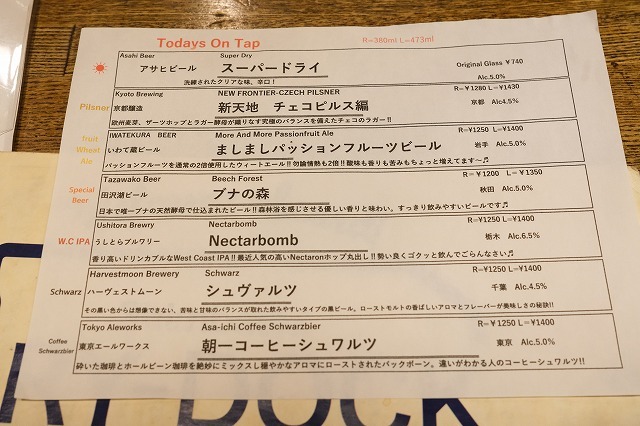 Todays On Tap
R=380ml L=473ml
Asahi Beer Super Dry
アサヒビール スーパードライ Original Glass ¥740
洗練されたクリアな味、辛口！ Alc.5.0%
Pilsner
Kyoto Brewing NEW FRONTIER-CZECH PILSNER R=¥1280 L=¥1430
京都醸造 新天地 チェコピルス編 京都 Alc4.5%
欧州麦芽、ザーツホップとラガー酵母が織りなす究極のバランスを備えたチェコのラガー!!
fruit Wheat Ale
IWATEKURA BEER More And More Passionfruit Ale R=¥1250 L=¥1400
いわて蔵ビール ましましパッションフルーツビール 岩手 Alc.5.0%
パッションフルーツを通常の2倍使用したウィートエール!!勿論情熱も2倍!!酸味も香りも苦みもちょっと増えてます〜♬
Special Beer
Tazawako Beer Beech Forest R=¥1200 L=¥1350
田沢湖ビール ブナの森 秋田 Alc.5.0%
日本で唯一ブナの天然酵母で仕込まれたビール!!森林浴を感じさせる優しい香りと味わい。すっきり飲みやすいビールです♬
W.C IPA
Ushitora Brewry Nectarbomb R=¥1250 L=¥1400
うしとらブルワリー Nectarbomb 栃木 Alc.6.5%
香り高いドリンカブルなWest Coast IPA!!最近人気の高いNectaronホップ丸出し!!勢い良くゴクッと飲んでごらんなさい♬
Schwarz
Harvestmoon Brewery Schwarz R=¥1250 L=¥1400
ハーヴェストムーン シュヴァルツ 千葉 Alc.4.5%
その黒い色からは想像できない、苦味と甘味のバランスが取れた飲みやすいタイプの黒ビール。ローストモルトの香ばしいアロマとフレーバーが美味しさの秘訣!!
Coffee Schwarzbier
Tokyo Aleworks Asa-ichi Coffee Schwarzbier R=¥1250 L=¥1400
東京エールワークス 朝一コーヒーシュワルツ 東京 Alc.5.0%
砕いた珈琲とホールビーン珈琲を絶妙にミックスし穏やかなアロマにローストされたバックボーン。違いがわかる人のコーヒーシュワルツ!!